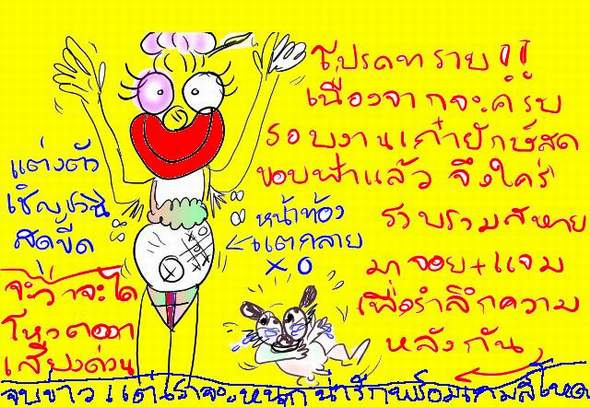 โปรดทราบ!!
เนื่องจากจะค้รบ
รอบงานเก๋ายักษ์สด
ขอบฟ้าแล้ว จึงใคร่
รวบรวมสหาย
มาจอย+แจม
เพื่อรำลึกความ
หลังกัน
แต่งตัว
เชิญชวน
สดขีด
หน้าท้อง
แตกลาย
XO
จะว่าจะได
โหวตออก
เสียงด่วน
จบข่าว